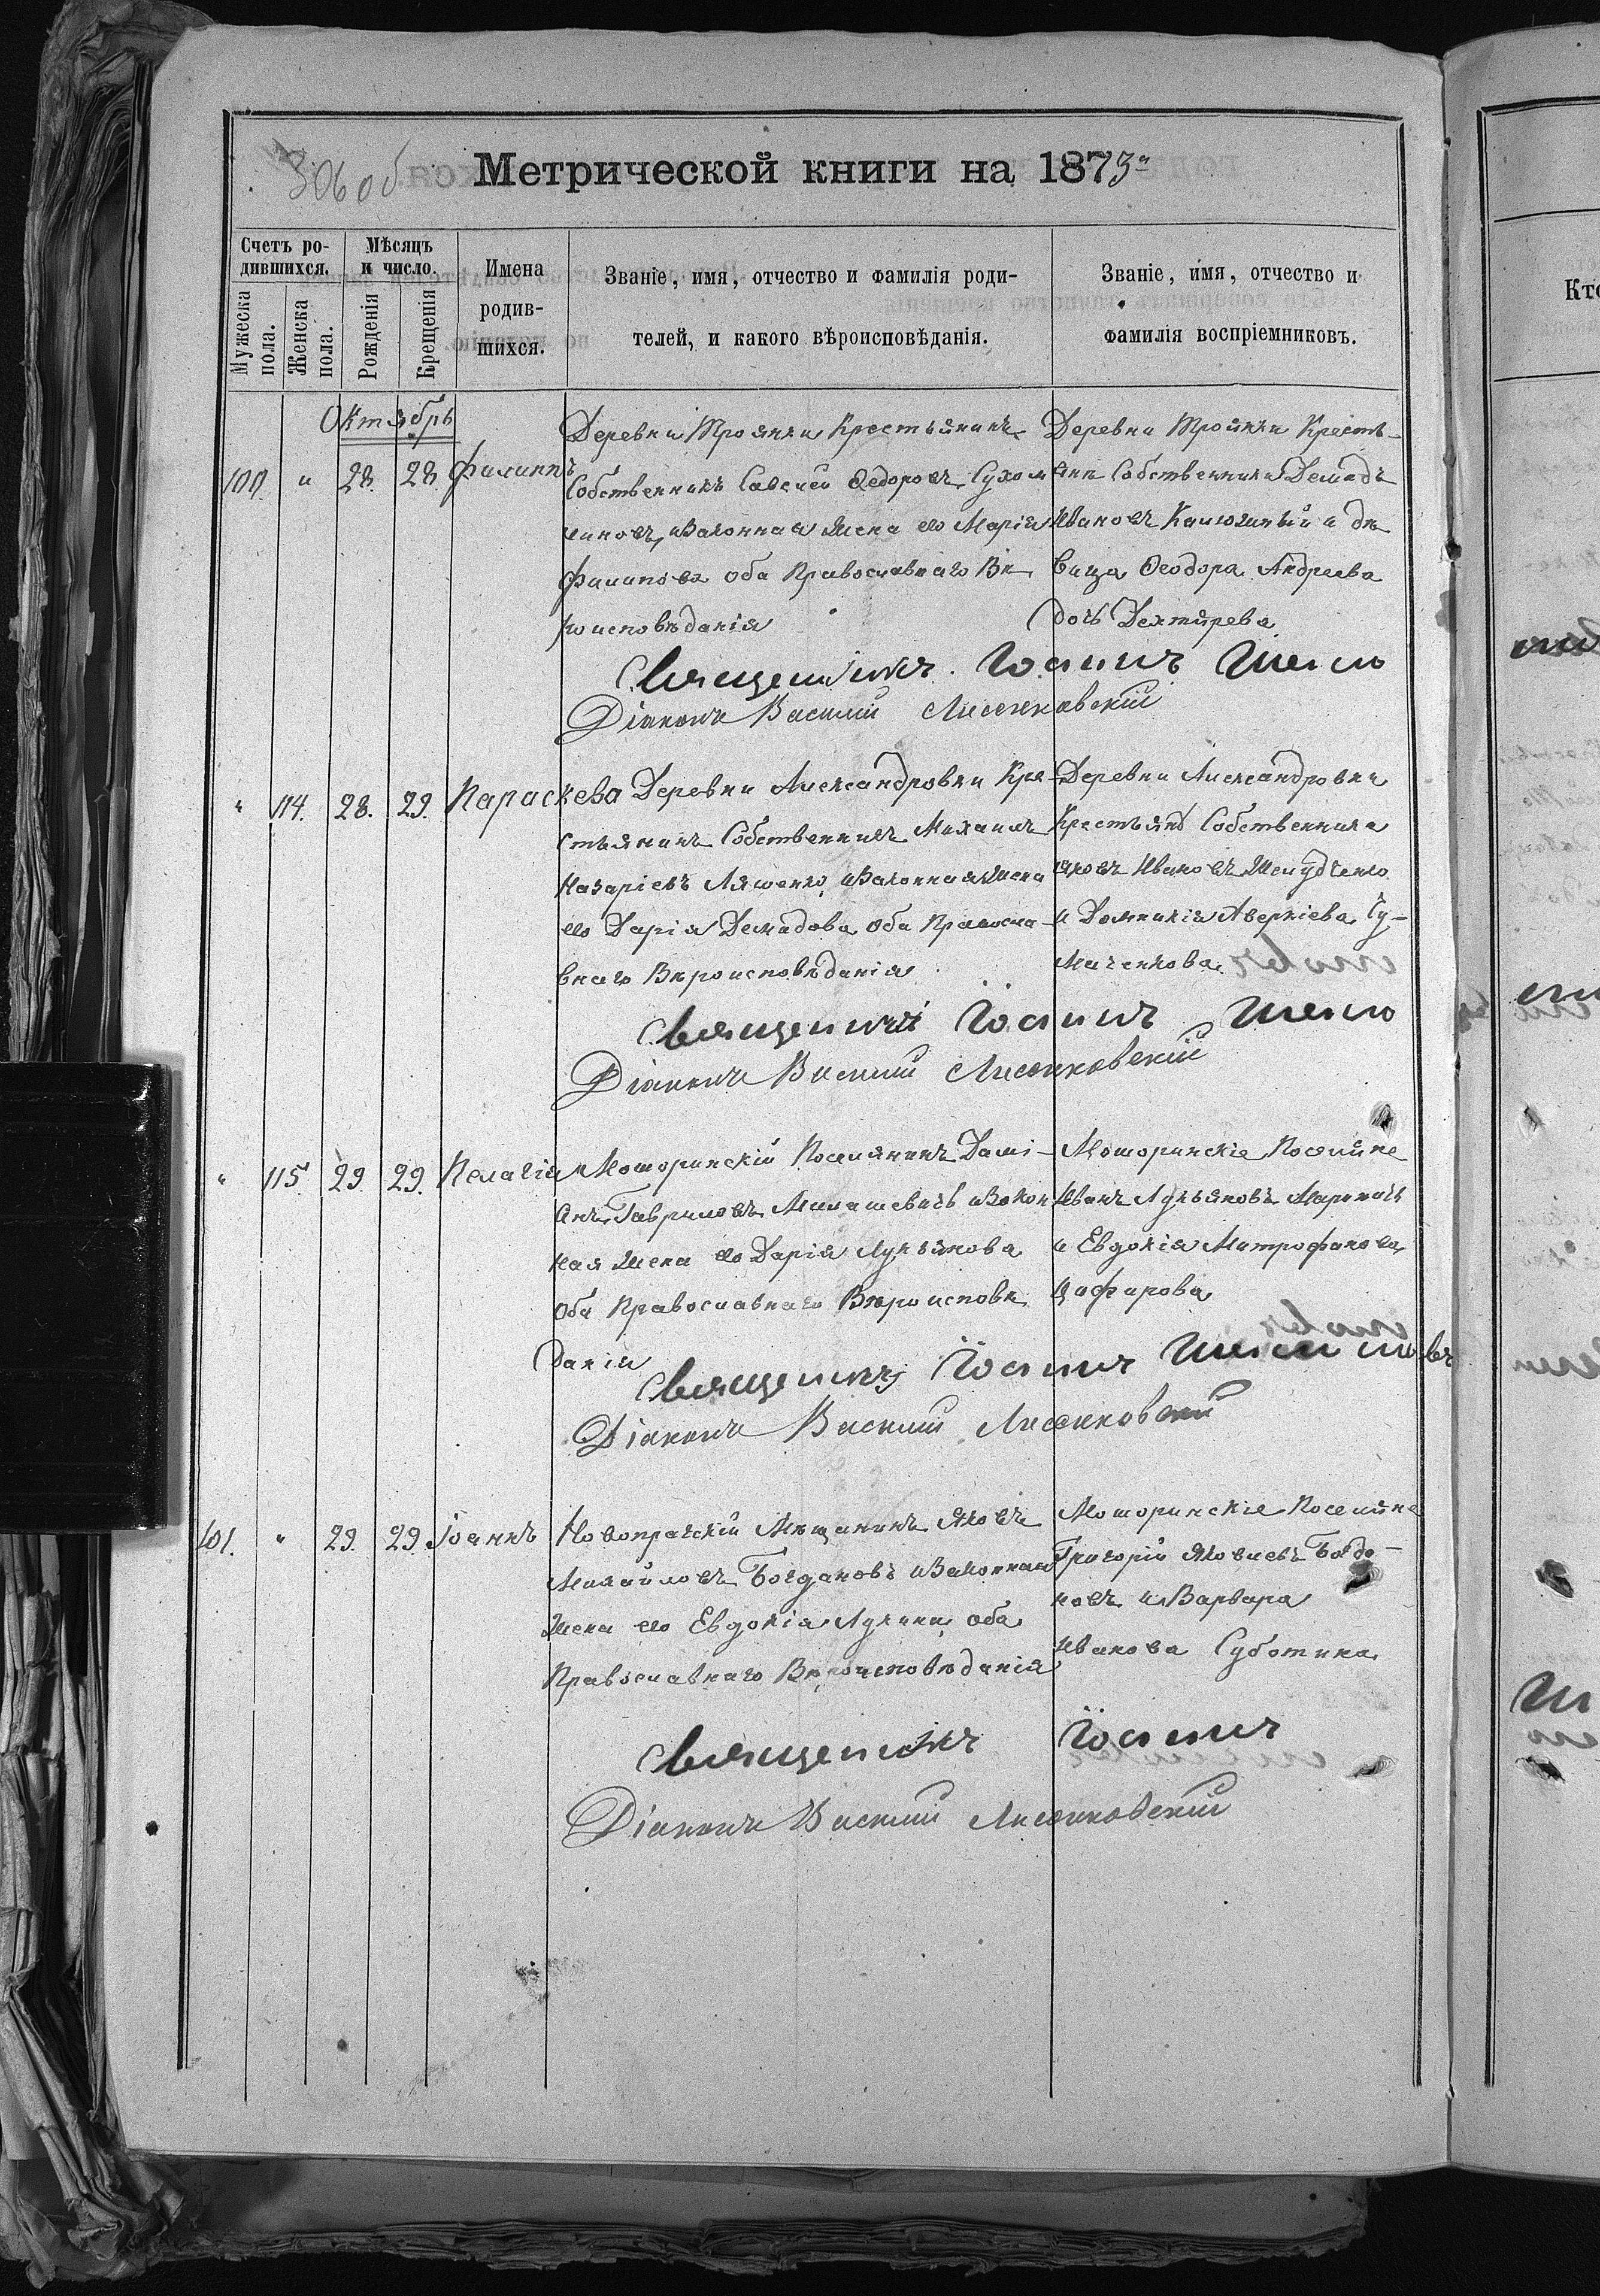 306 об
Метрической книги на 1873й
Счетъ ро-
дившихся.
Мужеска пола.
Женска пола.
Мѣсяцъ
и число.
Рожденія
Крещенія
Имена
родив-
шихся.
Званіе, имя, отчество и фамилія роди-
телей, и какого вѣроисповѣданія.
Званіе, имя, отчество и
фамилія воспріемниковъ.
Октябрь
100. " 28. 28. Филиппъ
Деревни Троянки Крестьянинъ
Собственникъ Савелий Федоровъ Сухом
линовъ, и Законная жена его Марія
Филипова оба Православнаго Вѣ
роисповѣданія
Деревни Троянки Кресть-
яни Собственники Демидъ
Ивановъ и дѣ
вица Феодора Андреева
дочь Дехтярева
Священникъ Іоаннъ
Діаконъ Василий Лисенковскій
" 114. 28. 29. Параскева
Деревни Александровки Кре-
стьянинъ Собственникъ Михаилъ
Назаріевъ Ляшенко, и Законная жена
его Дарія Демидова оба Правосла-
внаго Вѣроисповѣданія
Деревни Александровки
Крестьянѣ Собственника
Яковъ Ивановъ
и Домникія Аверкіева Су-
маченкова
Священникъ Іоаннъ
Діаконъ Василий Лисенковскій
" 115. 29. 29. Пелагія
Моторинскій Поселянинъ Даміа-
анъ Гавриловъ Милашевичъ и Закон
ная жена его Дарія Лукьянова
Оба Православнаго Вѣроисповѣ
данія
Моторинскіе Поселяне
Иванъ Лукьяновъ Мариничъ
и Евдокія Митрофанова
Цифирова
Священникъ Іоаннъ
Діаконъ Василий Лисенковский
101. " 29. 29. Іоаннъ
Новопражскій Мѣщанинъ Яковъ
Михайловъ Богдановъ и Законная
жена его Евдокія Лукина оба
Православнаго Вѣроисповѣданія
Моторинскіе Поселяне
Григорій Яковлевъ Богда-
новъ и Варвара
Иванова Суботина
Священникъ Іоаннъ
Діаконъ Василий Лисенковскій
Кто